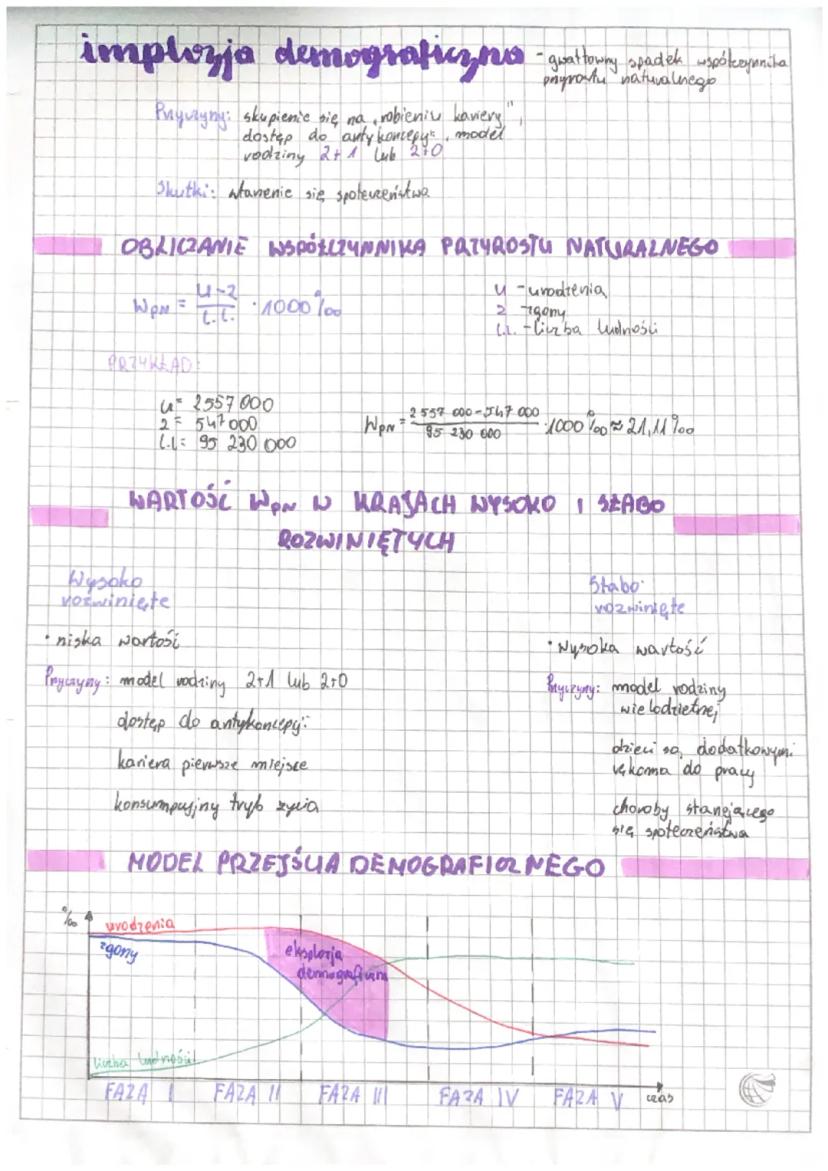 implozja demograficzna - gwałtowny spadek współczynnika
przyrostu naturalnego
Przyczyny: skupienie się na „robieniu kariery",
dostęp do antykoncepcji, model
rodziny 2+1 lub 2+0
Skutki: starzenie się społeczeństwa
OBLICZANIE WSPÓŁCZYNNIKA PRZYROSTU NATURALNEGO
WPN = U-Z / L.L. · 1000‰
U - urodzenia
Z - zgony
L.L. - liczba ludności
PRZYKŁAD:
U = 2557 000
Z = 547 000
L.L = 95 230 000
WPN = 2 557 000 - 547 000 / 95 230 000 · 1000‰ ≈ 21,11‰
WARTOŚĆ WPN W KRAJACH WYSOKO I SŁABO
ROZWINIĘTYCH
Wysoko
rozwinięte
• niska wartość
Przyczyny: model rodziny 2+1 lub 2+0
dostęp do antykoncepcji
kariera pierwsze miejsce
konsumpcyjny tryb życia
Słabo
rozwinięte
• wysoka wartość
Przyczyny: model rodziny
wielodzietnej
dzieci są dodatkowymi
rękoma do pracy
choroby starzejącego
się społeczeństwa
MODEL PRZEJŚCIA DEMOGRAFICZNEGO
‰
urodzenia
zgony
eksplozja
demograficzna
liczba ludności
FAZA I FAZA II FAZA III FAZA IV FAZA V czas